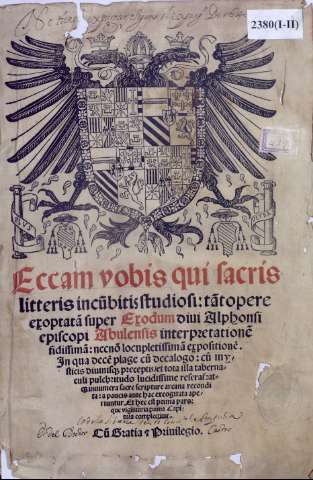 2380(I-II)
PLVS
Eccam vobis qui sacris
litteris incūbitis studiosi: tāt opere
exoptatā super Exodum diui Alphonsi
episcopi Abulensis interpretationē
fidissimā: necnō locupletissimā expositionē.
In qua decē plage cū decalogo: cū my-
sticis diuinisq; preceptis: et tota illa taberna-
culi pulchritudo lucidissime reserat:
innumera sacre scripture arcana recondi-
ta: a paucis ante hac excogitata ape-
riuntur. Et hec est prima pars:
que viginti Capi-
tula complectitur.
Cū Gratia et Priuilegio.